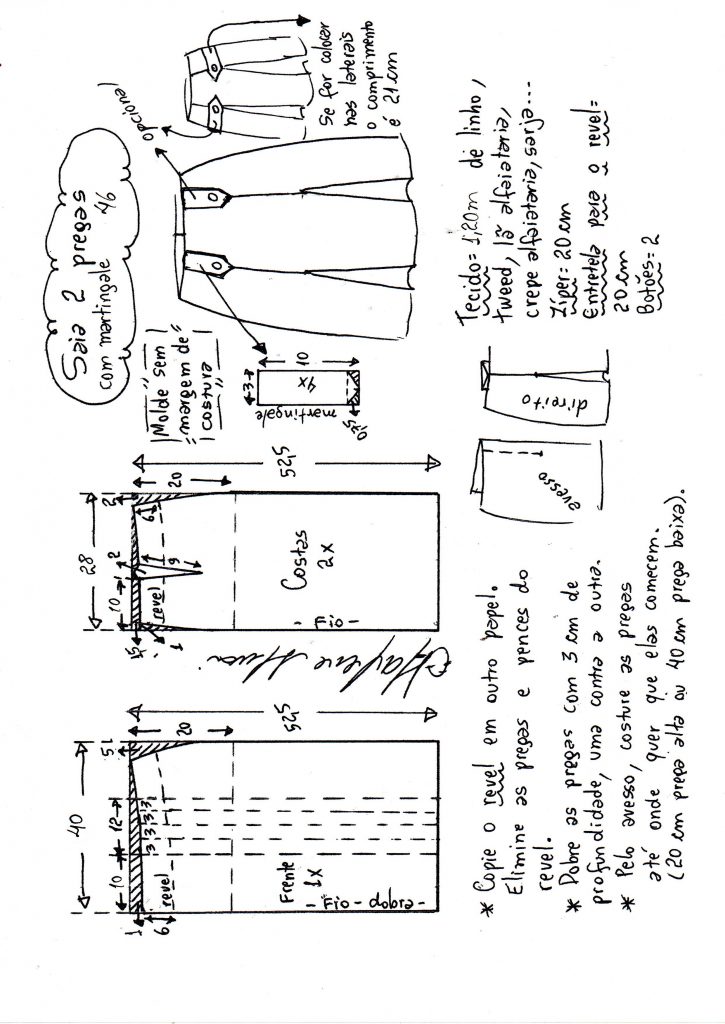 40
10
12
5
1
6
3 3 3 3
20
52,5
revel
Frente
1x
- Fio - dobra -
28
10
2
2
1,5
1
6
9
20
52,5
revel
Costas
2x
- Fio -
Marlene Mukai
Saia 2 pregas
com martingale 46
Molde "sem"
"margem de"
costura"
3
10
4x
martingale
0,75
opcional
Se for colocar
nas laterais
o comprimento
é 21cm
* Copie o revel em outro papel.
Elimine as pregas e pences do
revel.
* Dobre as pregas com 3 cm de
profundidade, uma contra a outra.
* Pelo avesso, costure as pregas
até onde quer que elas comecem.
(20 cm prega alta ou 40 cm prega baixa).
avesso
direito
Tecido= 1,20m de linho,
tweed, lã alfaiataria,
crepe alfaiataria, sarja...
Zíper= 20 cm
Entretela para o revel=
20 cm
Botões= 2